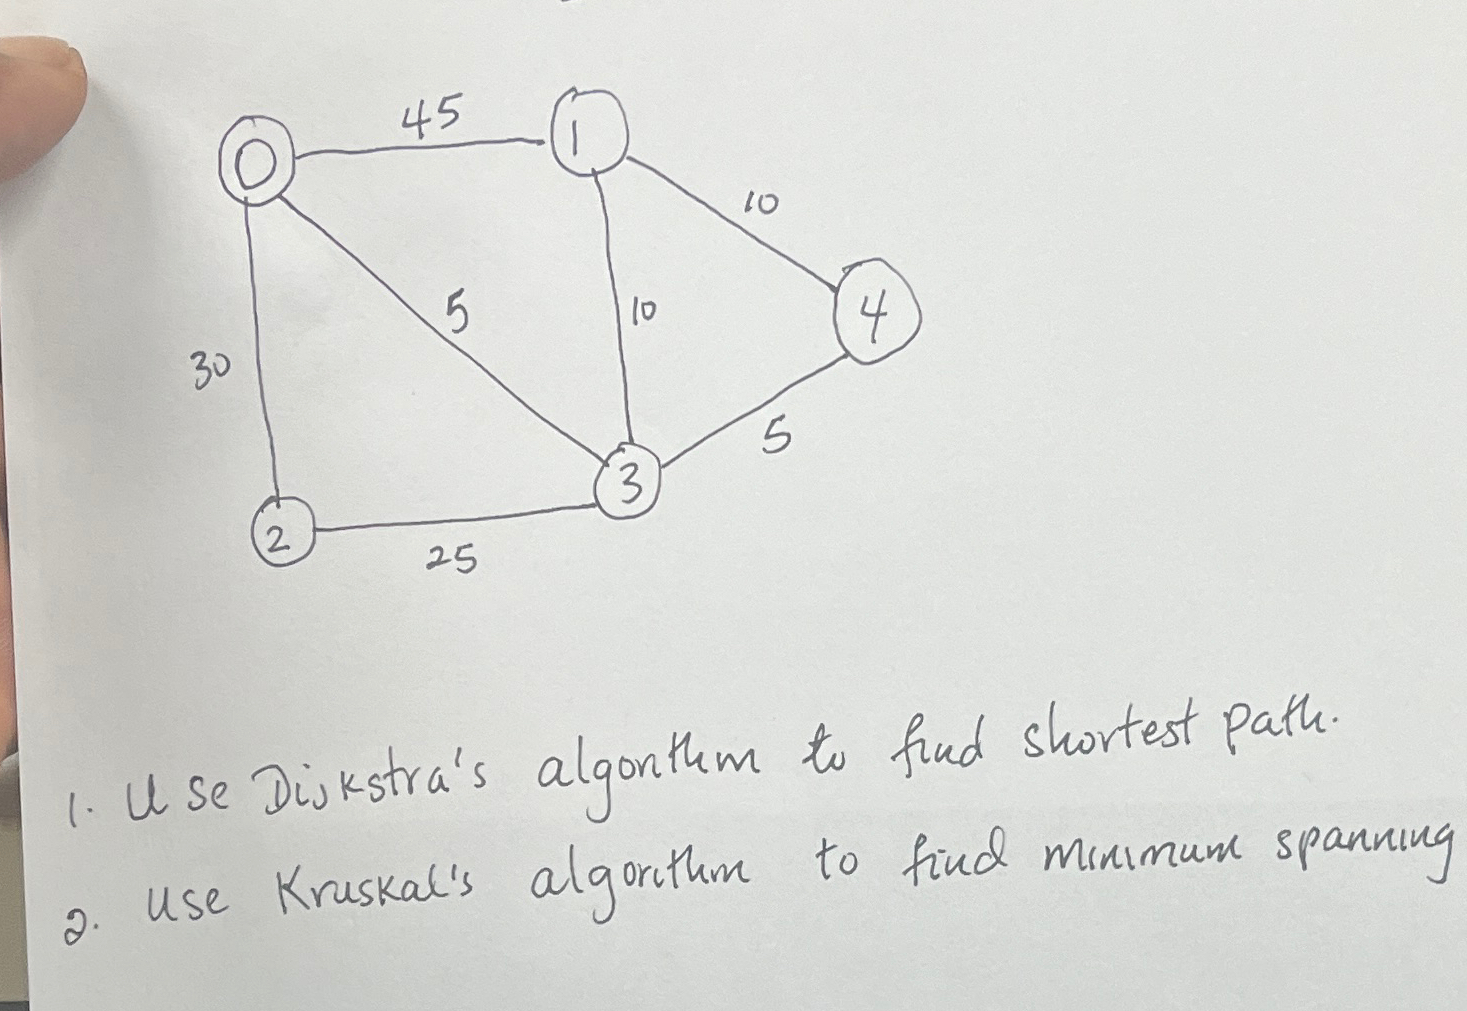 45
0
1
10
5
10
4
30
5
3
2
25
1. Use Dijkstra's algorithm to find shortest path.
2. Use Kruskal's algorithm to find minimum spanning